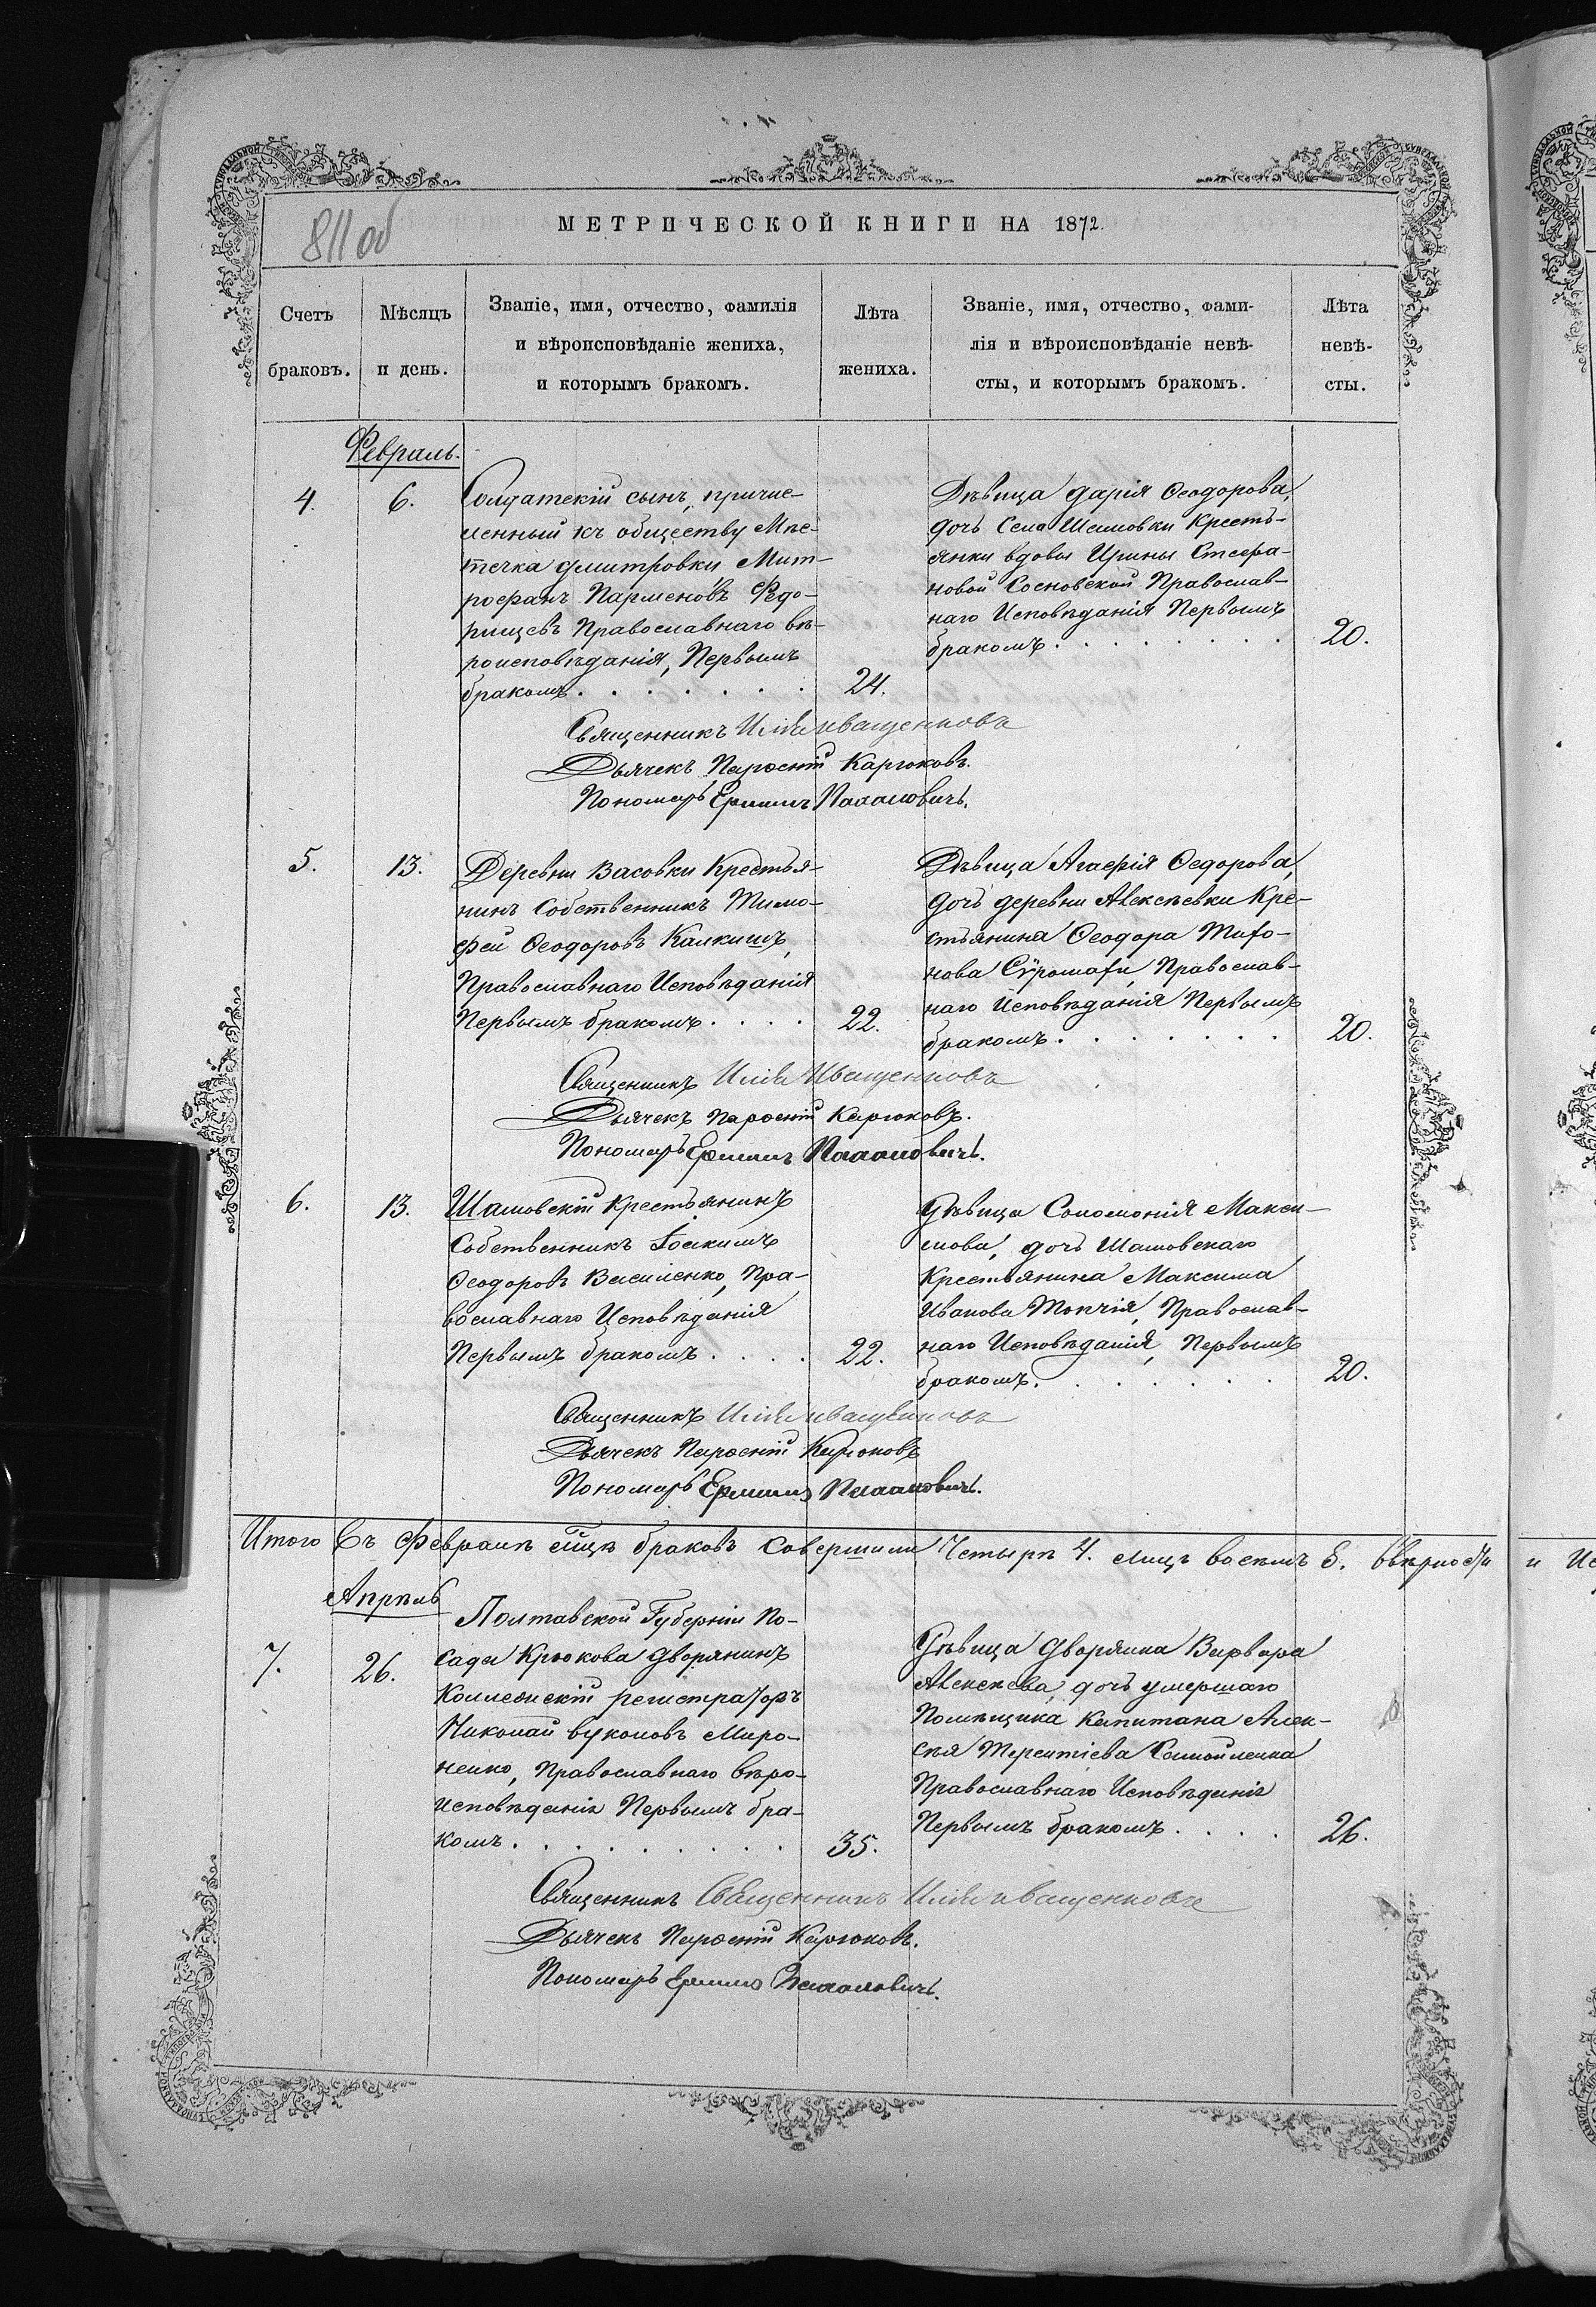 811 об
МЕТРИЧЕСКОЙ КНИГИ НА 1872.
Счетъ браковъ.
Мѣсяцъ и день.
Званіе, имя, отчество, фамилія
и вѣроисповѣданіе жениха,
и которымъ бракомъ.
Лѣта жениха.
Званіе, имя, отчество, фами-
лія и вѣроисповѣданіе невѣ-
сты, и которымъ бракомъ.
Лѣта невѣ-
сты.
Февраль.
4.
6.
Солдатскій сынъ, причис-
ленный къ обществу Мѣс-
течка Дмитровки Мит-
рофанъ Парменовъ Федо-
рищевъ Православнаго вѣ-
роисповѣданія, Первымъ
бракомъ.
24.
Дѣвица Дарія Ѳеодорова,
дочь Села Шамовки Кресть-
янки вдовы Ирины Стефа-
новой Сосновской Православ-
наго Исповѣданія Первымъ
бракомъ.
20.
Священникъ Илія Иващенковъ
Дьячекъ Парѳеній Карюковъ.
Пономарь Ермилъ
5.
13.
Деревни Васовки Крестья-
нинъ Собственникъ Тимо-
фей Ѳеодоровъ Калкишъ,
Православнаго Исповѣданія
Первымъ бракомъ.
22.
Дѣвица Агафія Ѳедорова,
дочь деревни Алексѣевки Кре-
стьянина Ѳеодора
нова Православ-
наго Исповѣданія Первымъ
бракомъ.
20.
Священникъ Илія Иващенковъ
Дьячекъ Парѳеній Карюковъ.
Пономарь Ермилъ
6.
13.
Шамовскій Крестьянинъ
Собственникъ Іоакимъ
Ѳеодоровъ Василенко, Пра-
вославнаго Исповѣданія
Первымъ бракомъ.
22.
Дѣвица Соломонія Макси-
мова, дочь Шамовскаго
Крестьянина Максима
Иванова Топчія, Православ-
наго Исповѣданія, Первымъ
бракомъ.
20.
Священникъ Илія Иващенковъ
Дьячекъ Парѳеній Карюковъ
Пономарь Ермилъ
Итого Въ Февралѣ мцѣ браковъ Совершили Четырѣ 4. лицъ восѣмъ 8.
Апрѣль
7.
26.
Полтавской Губерніи По-
сада Крюкова Дворянинъ
Коллежскій регистраторъ
Николай Вуколовъ Миро-
ненко, Православнаго вѣро-
исповѣданія Первымъ бра-
комъ.
35.
Дѣвица Дворянка Варвара
Алексѣева, дочь умершаго
Помѣщика Капитана Алек-
сѣя Терентіева Самойленка
Православнаго Исповѣданія
Первымъ бракомъ.
26.
Священникъ Священникъ Илія Иващенковъ
Дьячекъ Парѳеній Карюковъ.
Пономарь Ермилъ